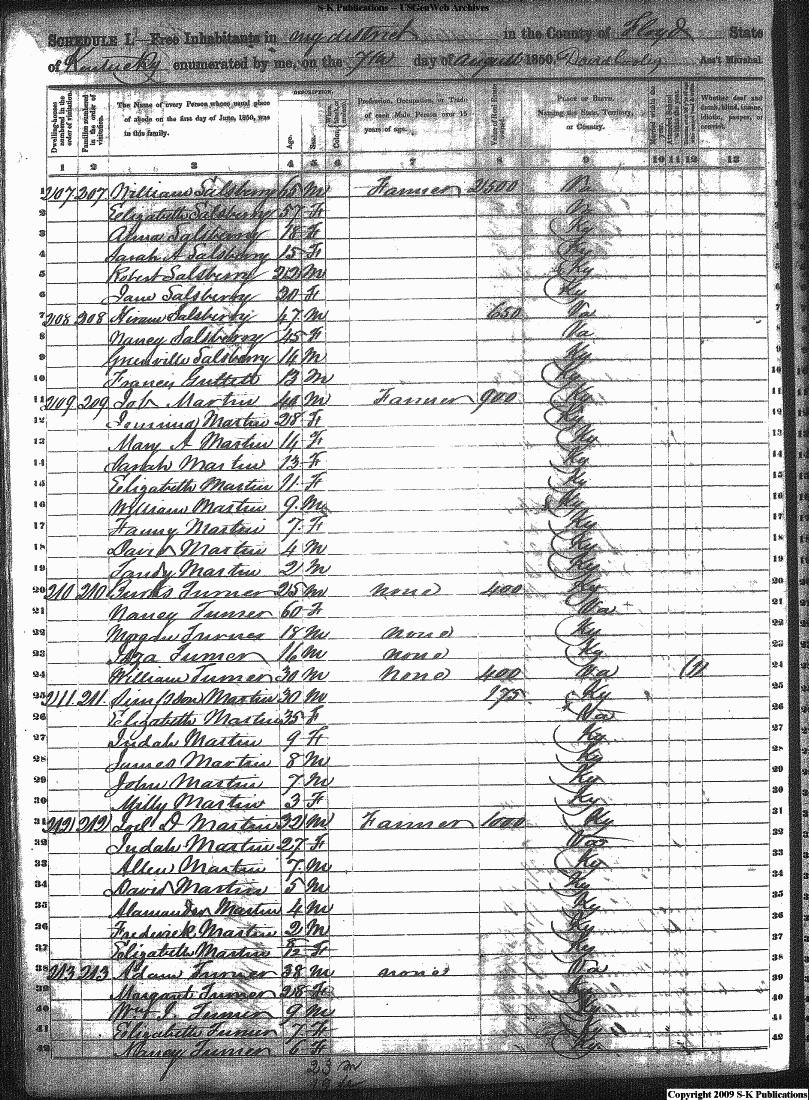 S-K Publications -- USGenWeb Archives
SCHEDULE I. Free Inhabitants in my district in the County of Floyd State
of Kentucky enumerated by me, on the 7th day of August 1850. David Cooley Ass't Marshal
Dwelling-houses numbered in the order of visitation.
Families numbered in the order of visitation.
The Name of every Person whose usual place of abode on the first day of June, 1850, was in this family.
DESCRIPTION.
Age.
Sex.
Profession, Occupation, or Trade of each Male Person over 15 years of age.
Value of Real Estate owned.
PLACE OF BIRTH. Naming the State, Territory, or Country.
Whether deaf and dumb, blind, insane, idiotic, pauper, or convict.
1 2 3 4 5 6 7 8 9 10 11 12 13
1 207 207 William Salsberry 65 M Farmer 2500
2 Elizabeth Salsberry 57 F
3 Anna Salsberry 18 F Ky
4 Sarah A Salsberry 15 F Ky
5 Robert Salsberry 22 M Ky
6 Jane Salsberry 20 F Ky
7 208 208 Hiram Salsberry 47 M 650 Va
8 Nancy Salsberry 45 F Va
9 Greenville Salsberry 14 M Ky
10 Francis 13 M Ky
11 209 209 Job Martin 40 M Farmer 900 Ky
12 Jemima Martin 28 F Ky
13 Mary A Martin 14 F Ky
14 Sarah Martin 13 F Ky
15 Elizabeth Martin 11 F Ky
16 William Martin 9 M Ky
17 Fanny Martin 7 F Ky
18 David Martin 4 M Ky
19 Tandy Martin 2 M Ky
20 210 210 Turner 25 M none 400 Ky
21 Nancy Turner 60 F Va
22 Morgan Turner 18 M none Ky
23 Turner 16 M none Ky
24 William Turner 30 M none 400 Va (1)
25 211 211 Martin 30 M 175 Ky
26 Elizabeth Martin 35 F Va
27 Judah Martin 9 F Ky
28 James Martin 8 M Ky
29 John Martin 7 M Ky
30 Milly Martin 3 F Ky
31 212 212 Joel D Martin 32 M Farmer 1000 Ky
32 Judah Martin 27 F Va
33 Allen Martin 7 M Ky
34 David Martin 5 M Ky
35 Alamander Martin 4 M Ky
36 Frederick Martin 2 M Ky
37 Elizabeth Martin 8/12 F Ky
38 213 213 Adam Turner 38 M none Va
39 Margaret Turner 28 F Ky
40 Wm J Turner 9 M Ky
41 Elizabeth Turner 7 F Ky
42 Nancy Turner 6 F Ky
23 M
19
Copyright 2009 S-K Publications